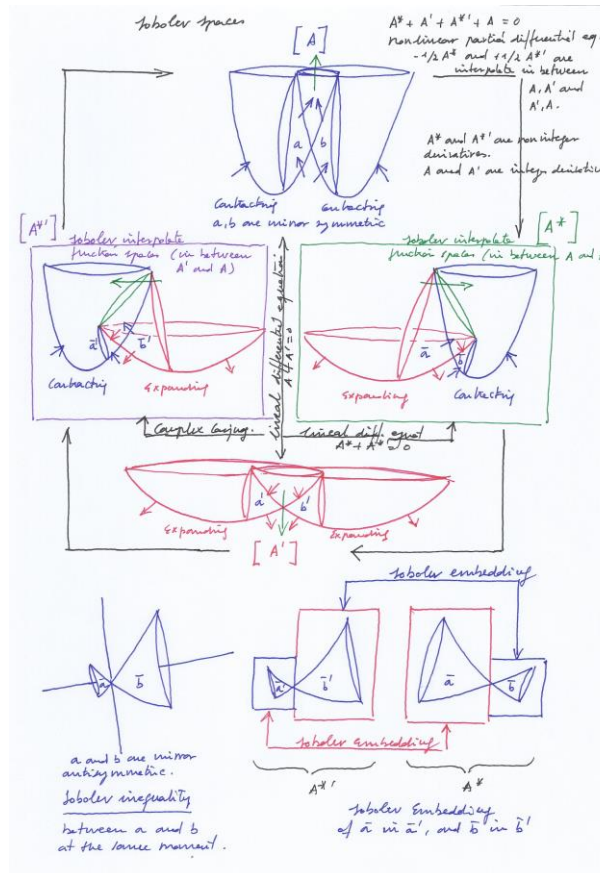 Soboler spaces
[A]
A* + A' + A*' + A = 0
nonlinear partial differential equ
-1/2 A* and +1/2 A*' are
interpolate in between
A, A' and
A', A.
A* and A*' are noninteger
derivatives.
A and A' are integer derivative
a
b
Contracting
Contracting
a, b are mirror symmetric
[A*']
Soboler interpolate
function spaces (in between
A' and A)
ā'
b̄'
Contracting
Expanding
lineal differential equation
A + A' = 0
[A*]
Soboler interpolate
function spaces (in between A and
ā
b̄
Expanding
Contracting
Complex Conjug.
lineal diff. equat
A* + A*' = 0
a'
b'
Expanding
Expanding
[A']
ā
b̄
a and b are mirror
antisymmetric.
Soboler inequality
between a and b
at the same moment.
Soboler embedding
ā'
b̄'
ā
b̄
Soboler embedding
A*'
A*
Soboler Embedding
of ā in ā', and b̄ in b̄'